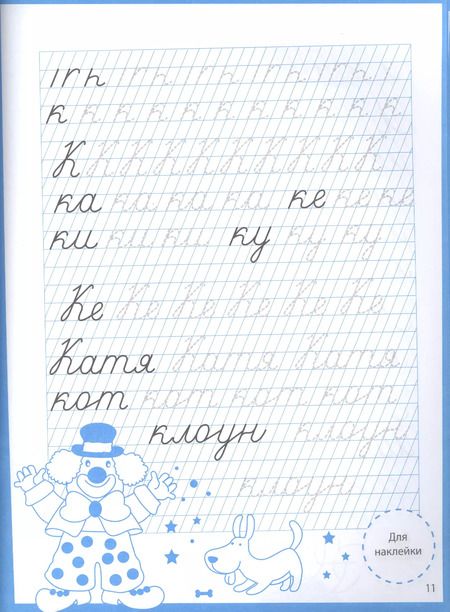 к к к к к к к к к к к
К К К К К К К К К К
ка ка ка ка ке ке ке
ки ки ки ку ку ку
Ке Ке Ке Ке Ке Ке
Катя Катя Катя
кот кот кот кот
клоун клоун
клоун
Для
наклейки
11